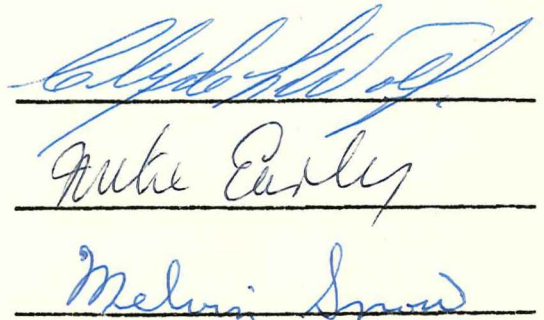 Clyde L Wolf
Mike Early
Melvin Snow